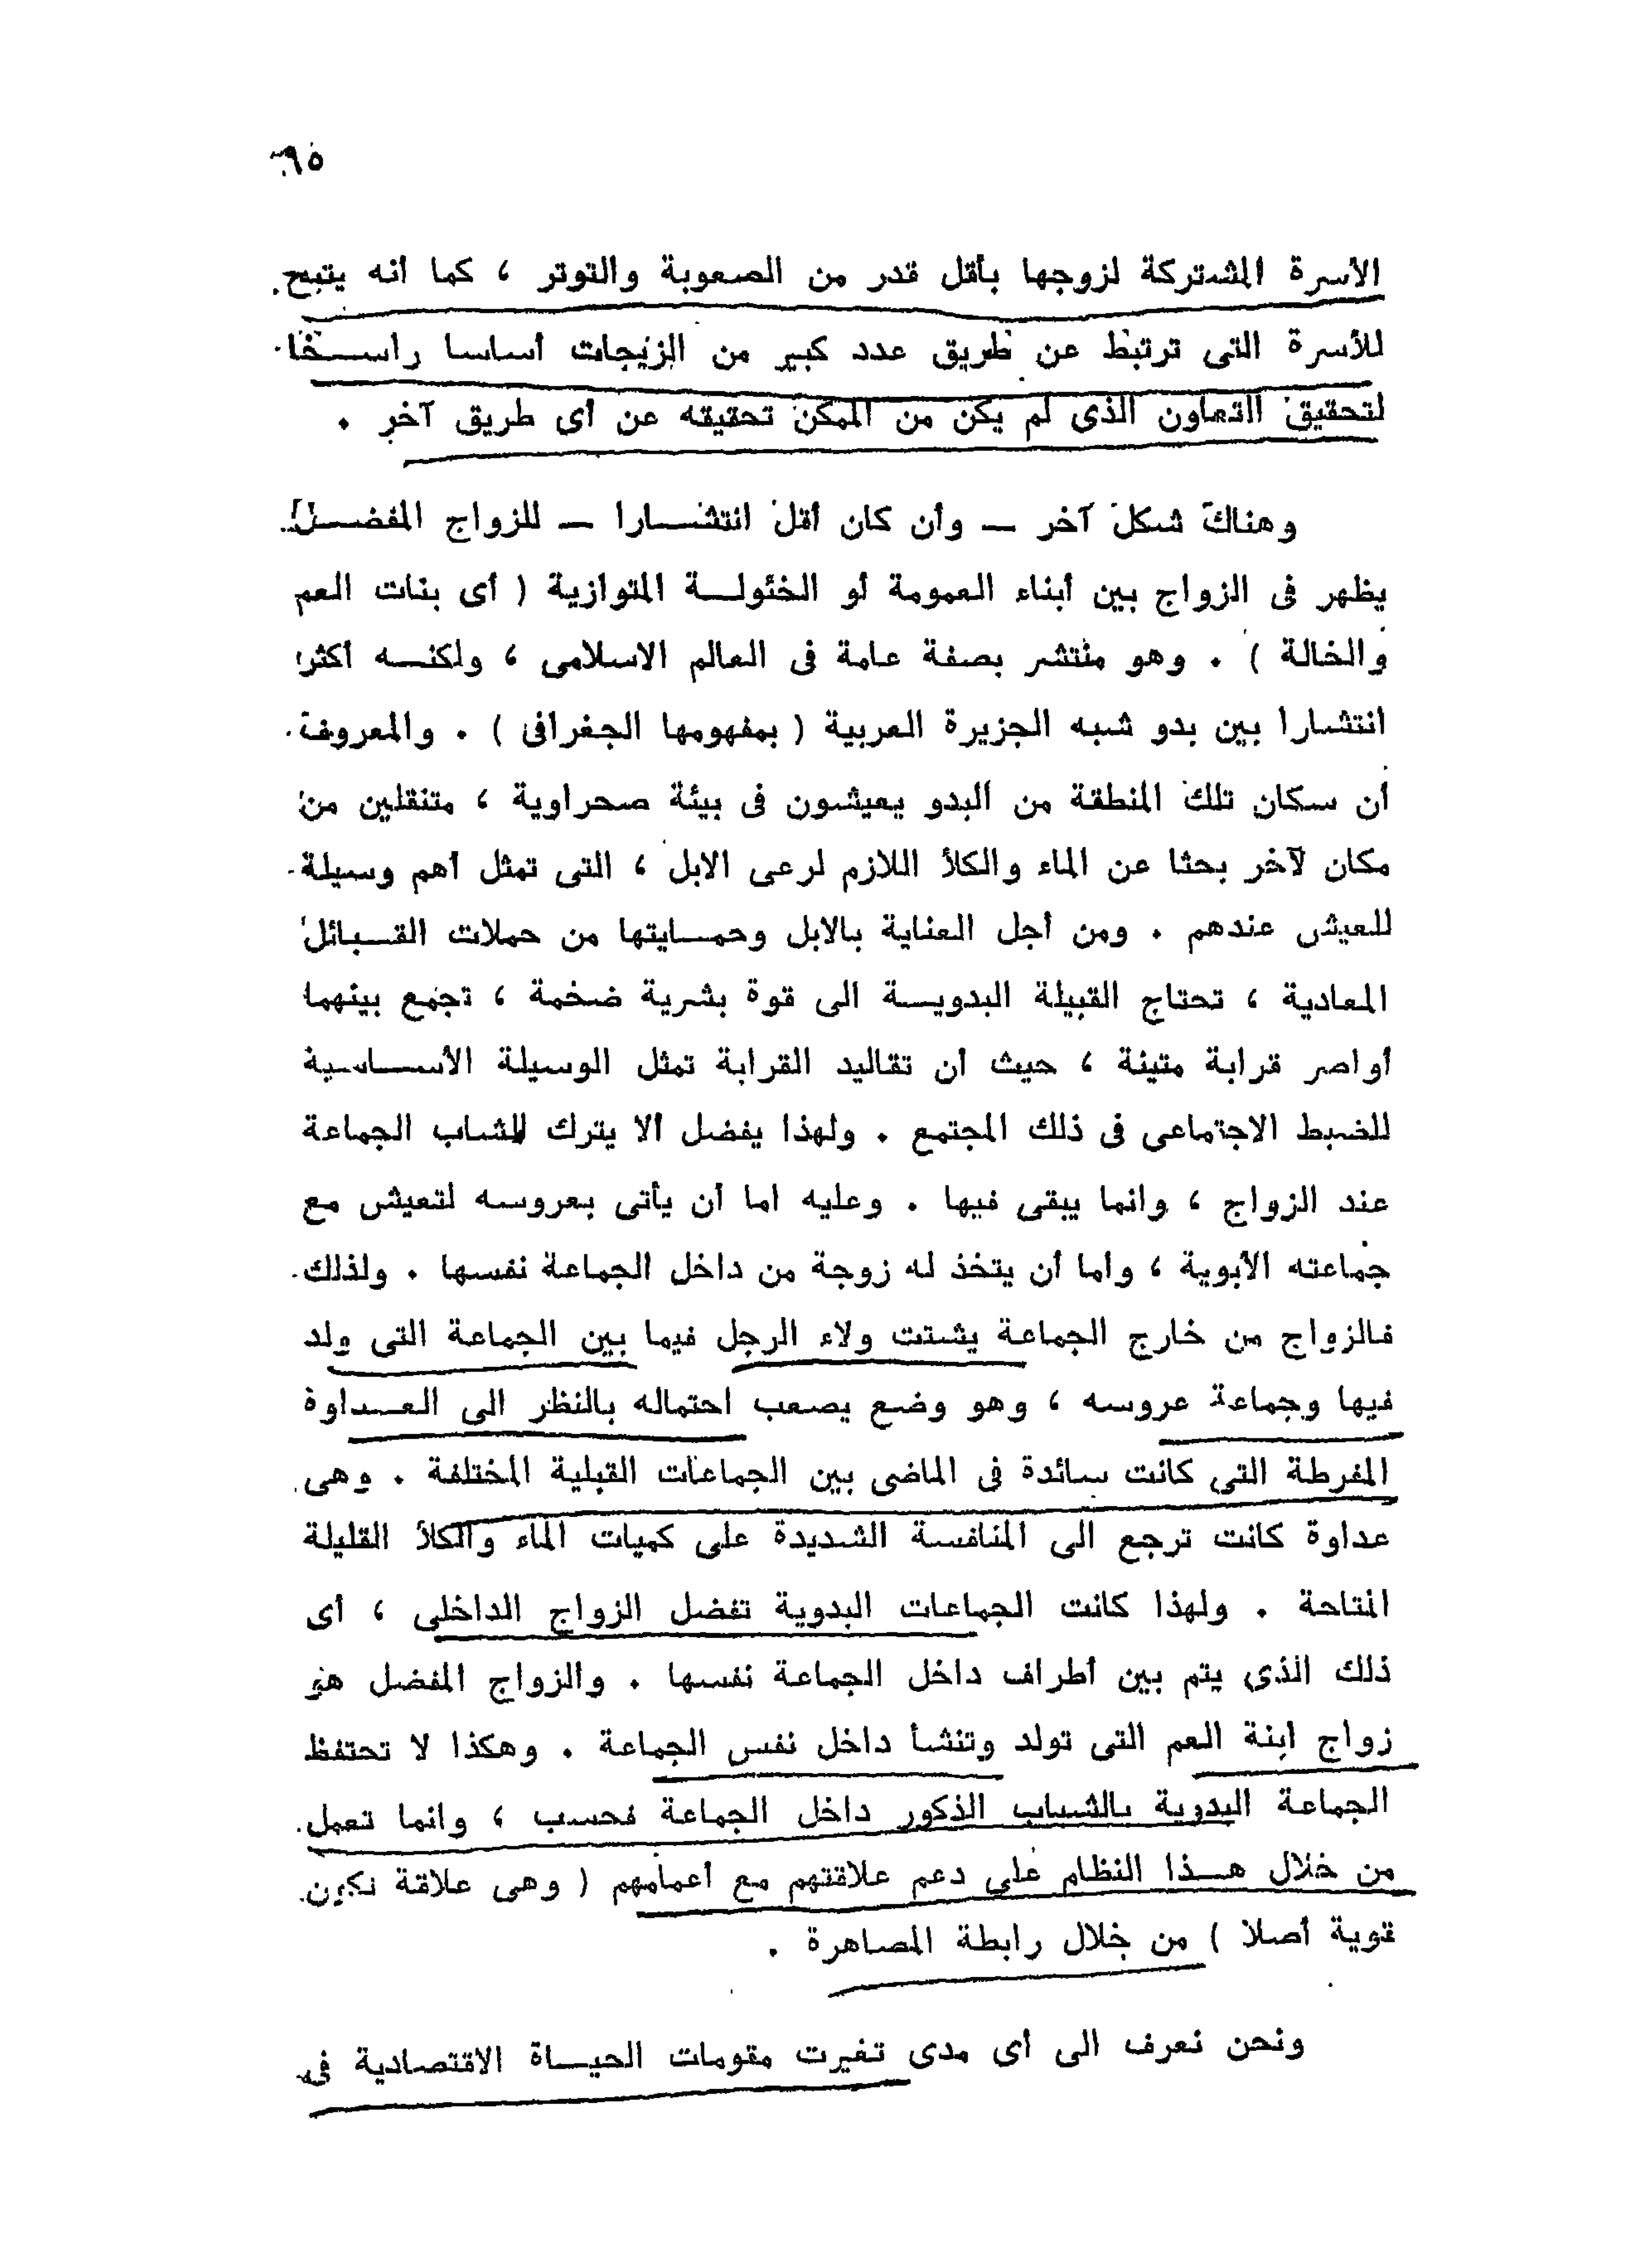 ٩٥
الأسرة المشتركة لزوجها بأقل قدر من الصعوبة والتوتر ، كما أنه يتيح
للأسرة التى ترتبط عن طريق عدد كبير من الزيجات أساسا راسخا
لتحقيق التعاون الذى لم يكن من الممكن تحقيقه عن أى طريق آخر .
وهناك شكل آخر — وأن كان أقل انتشارا — للزواج المفضل
يظهر فى الزواج بين أبناء العمومة أو الخئولة المتوازية ( أى بنات العم
والخالة ) . وهو منتشر بصفة عامة فى العالم الاسلامى ، ولكنه أكثر
انتشارا بين بدو شبه الجزيرة العربية ( بمفهومها الجغرافى ) . والمعروف
أن سكان تلك المنطقة من البدو يعيشون فى بيئة صحراوية ، متنقلين من
مكان لآخر بحثا عن الماء والكلأ اللازم لرعى الابل ، التى تمثل أهم وسيلة
للعيش عندهم . ومن أجل العناية بالابل وحمايتها من حملات القبائل
المعادية ، تحتاج القبيلة البدوية الى قوة بشرية ضخمة ، تجمع بينهما
أواصر قرابة متينة ، حيث أن تقاليد القرابة تمثل الوسيلة الأساسية
للضبط الاجتماعى فى ذلك المجتمع . ولهذا يفضل ألا يترك للشاب الجماعة
عند الزواج ، وانما يبقى فيها . وعليه اما أن يأتى بعروسه لتعيش مع
جماعته الأبوية ، واما أن يتخذ له زوجة من داخل الجماعة نفسها . ولذلك
فالزواج من خارج الجماعة يشتت ولاء الرجل فيما بين الجماعة التى ولد
فيها وجماعة عروسه ، وهو وضع يصعب احتماله بالنظر الى العداوة
المفرطة التى كانت سائدة فى الماضى بين الجماعات القبلية المختلفة . وهى
عداوة كانت ترجع الى المنافسة الشديدة على كميات الماء والكلأ القليلة
المتاحة . ولهذا كانت الجماعات البدوية تفضل الزواج الداخلى ، أى
ذلك الذى يتم بين أطراف داخل الجماعة نفسها . والزواج المفضل هو
زواج ابنة العم التى تولد وتنشأ داخل نفس الجماعة . وهكذا لا تحتفظ
الجماعة البدوية بالشباب الذكور داخل الجماعة فحسب ، وانما تعمل
من خلال هذا النظام على دعم علاقتهم مع أعمامهم ( وهى علاقة تكون
قوية أصلا ) من خلال رابطة المصاهرة .
ونحن نعرف الى أى مدى تغيرت مقومات الحياة الاقتصادية فى